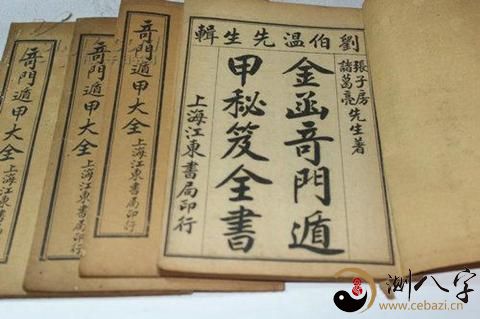 劉伯温先生輯
張子房
諸葛亮先生著
金函竒門遁
甲秘笈全書
上海江東書局印行
竒門遁甲大全
上海江東書局印行
竒門遁甲大全
上海江東書局印行
竒門遁甲大全
上海江東書局印行
测八字
www.cebazi.cn